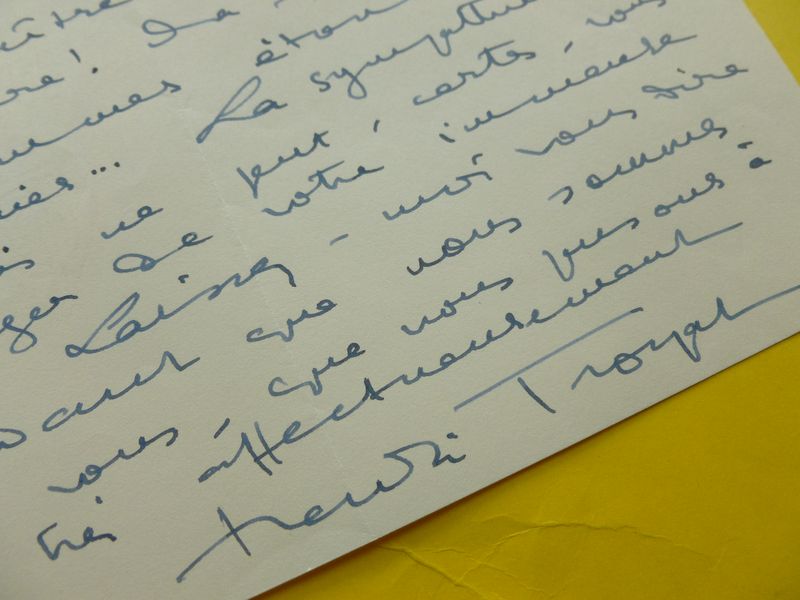 La
mmes
... La sympathie
ne peut, certes, vous
de votre immense
Laissez-moi vous dire
que nous sommes
vous, que nous pensons à
très affectueusement
Henri Troyat